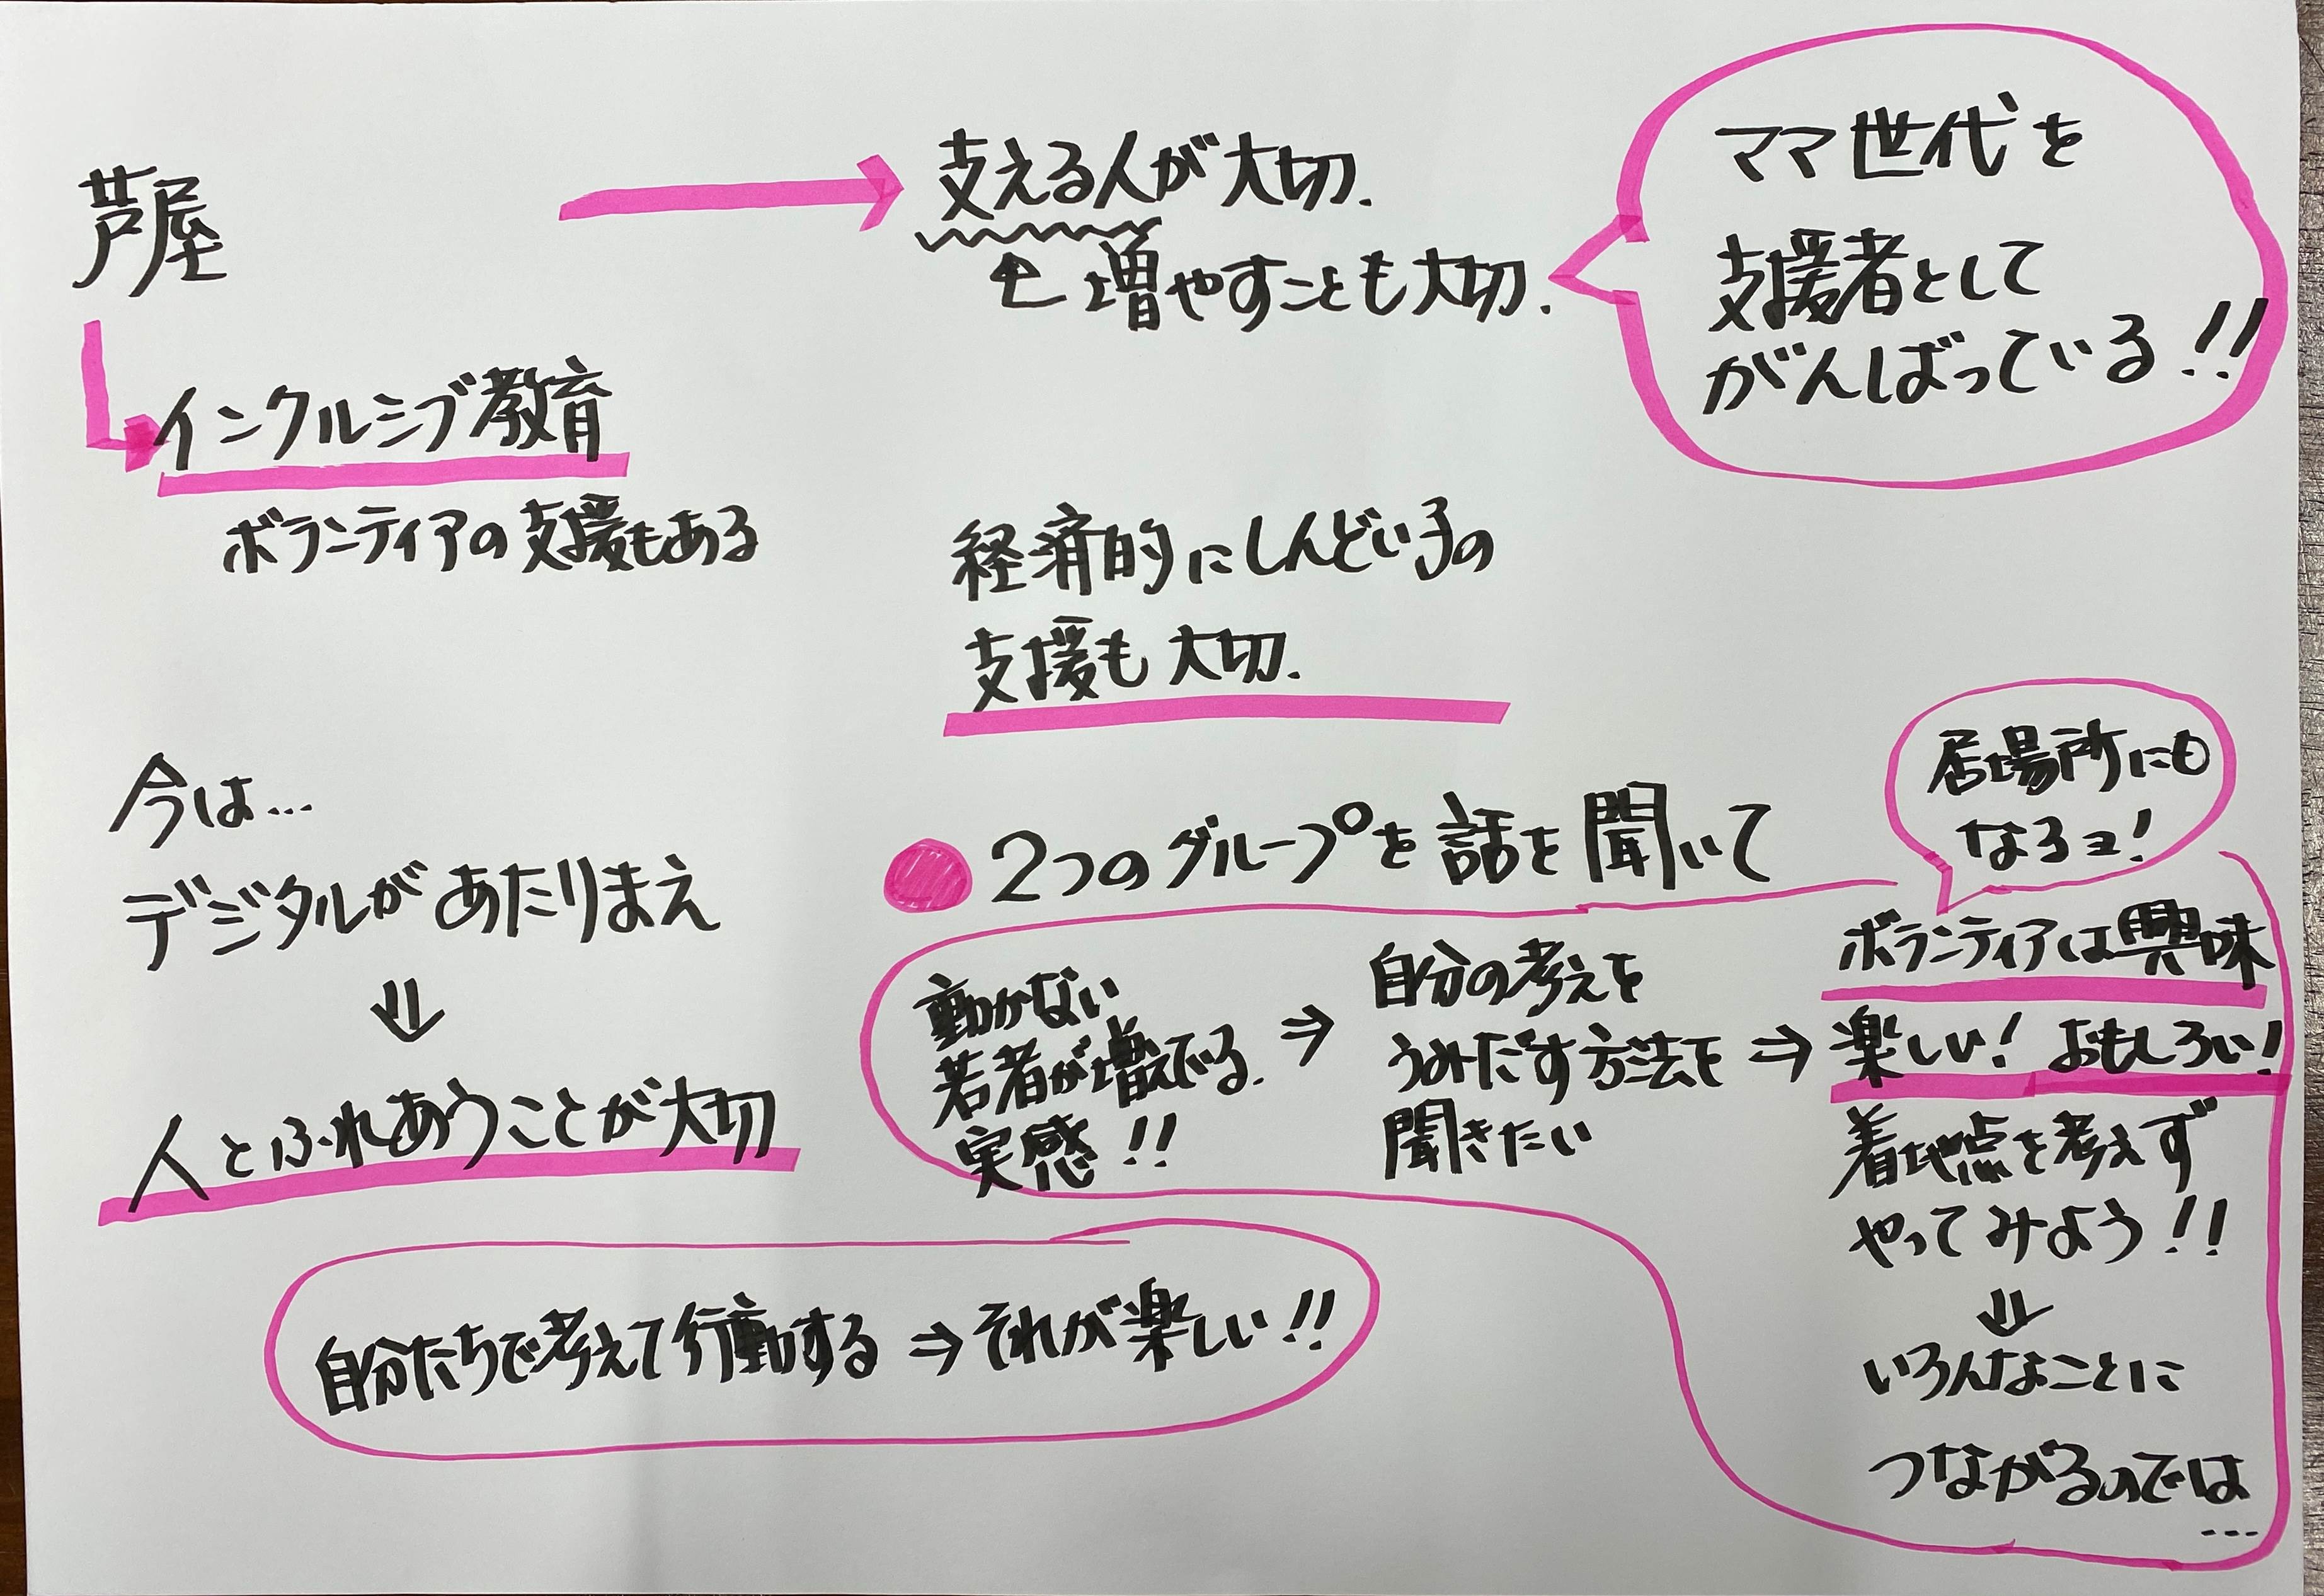 芦屋
インクルシブ教育
ボランティアの支援もある
支える人が大切.
増やすことも大切.
ママ世代を
支援者として
がんばっている!!
経済的にしんどい子の
支援も大切.
今は…
デジタルがあたりまえ
⇓
人とふれあうことが大切
自分たちで考えて行動する ⇒ それが楽しい!!
2つのグループを話を聞いて
動かない
若者が増えている.
実感!!
⇒
自分の考えを
うみだす方法を
聞きたい
⇒
居場所にも
なるヨ!
ボランティアは興味
楽しい! おもしろい!
着地点を考えず
やってみよう!!
⇓
いろんなことに
つながるのでは
…